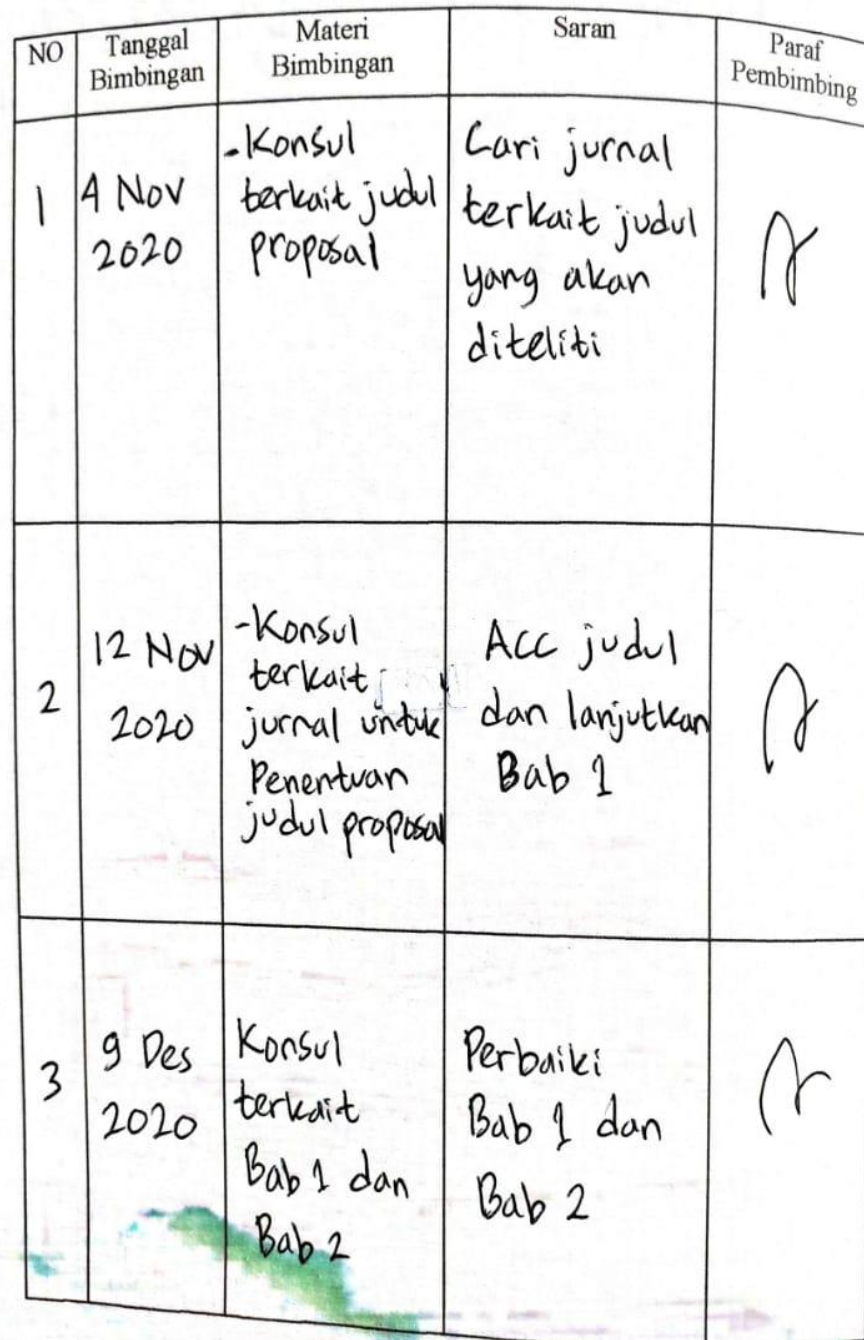 NO
Tanggal
Bimbingan
Materi
Bimbingan
Saran
Paraf
Pembimbing
1
4 Nov
2020
-Konsul
terkait judul
proposal
Cari jurnal
terkait judul
yang akan
diteliti
2
12 Nov
2020
-Konsul
terkait
jurnal untuk
Penentuan
judul proposal
Acc judul
dan lanjutkan
Bab 1
3
9 Des
2020
Konsul
terkait
Bab 1 dan
Bab 2
Perbaiki
Bab 1 dan
Bab 2